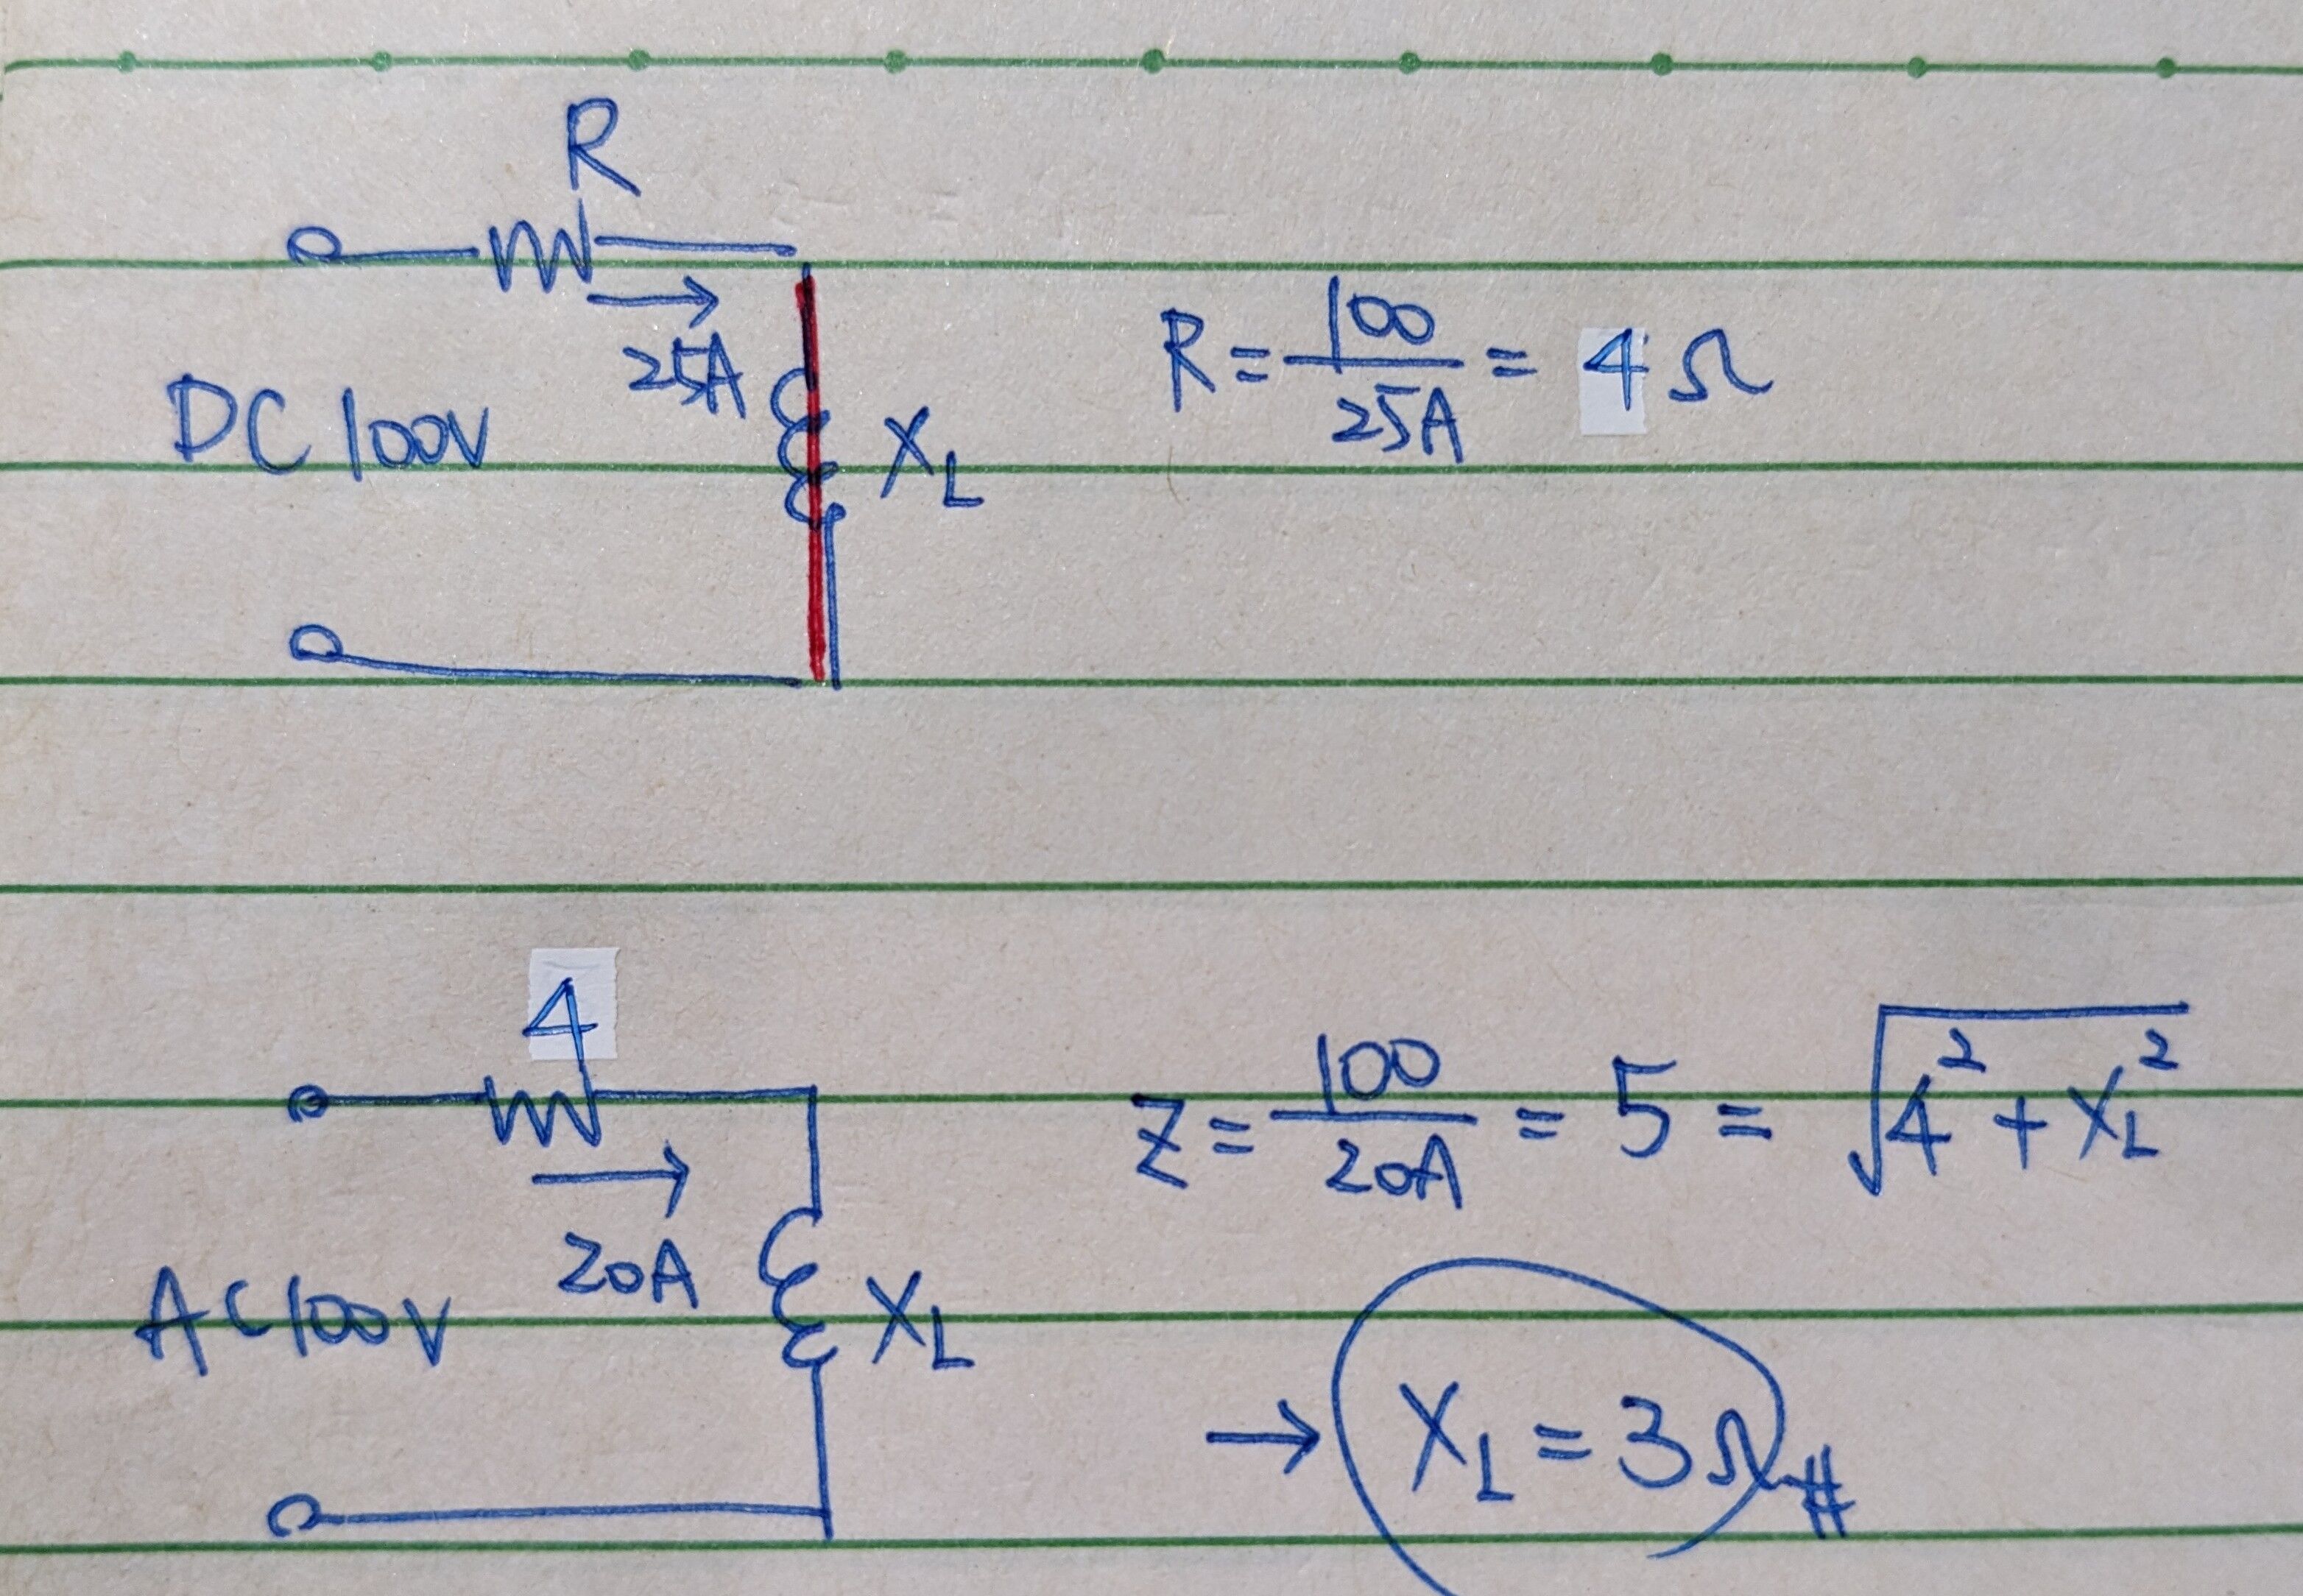 R
25A
DC 100V
X_L
R = 100/25A = 4 Ω
4
20A
AC 100V
X_L
Z = 100/20A = 5 = √(4² + X_L²)
→ X_L = 3Ω #